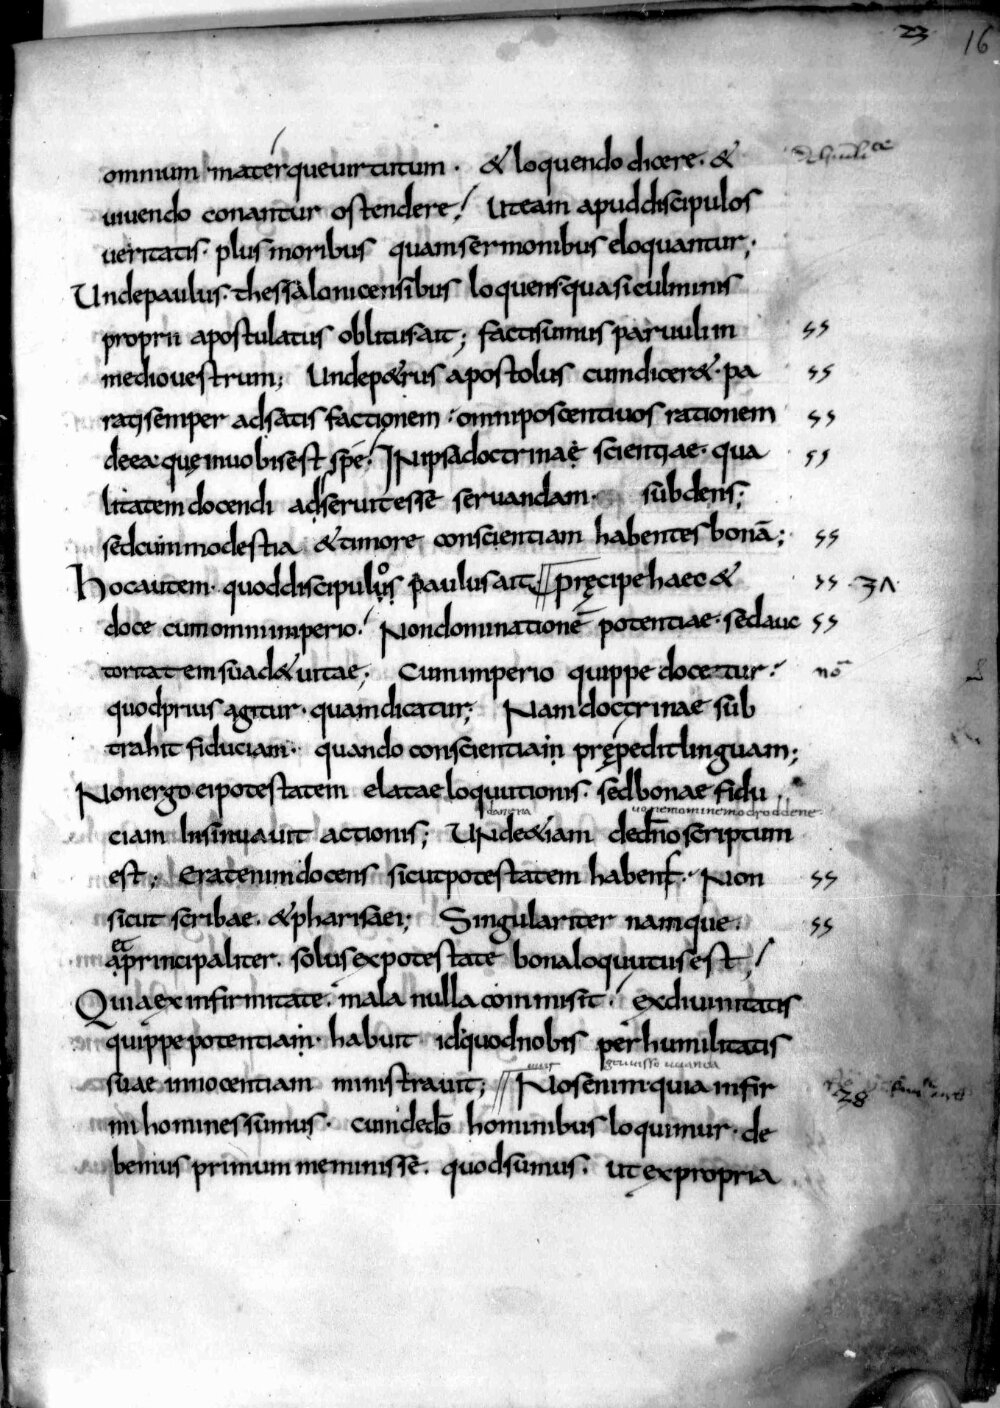 23 16
omnium materque uirtutum · & loquendo dicere · &
uiuendo conantur ostendere; Ut eam apud discipulos
ueritatis · plus moribus quam sermonibus eloquantur;
Unde paulus · thessalonicensibus loquens quasi culminis
proprii apostulatus oblitus ait; facti sumus paruuli in
medio uestrum; Unde p&rus apostolus cum dicer& · pa
rati semper ad satisfactionem · omni poscenti uos rationem
de ea · quę in uobis est spe; In ipsa doctrinae scientiae · qua
litatem docendi adseruit esse seruandam · subdens;
sed cum modestia & timore conscientiam habentes bonā;
Hoc autem · quod discipulos paulus ait pręcipe haec &
doce cum omni imperio; Non dominationē potentiae · sed auc
toritatem suad& uitae; Cum imperio quippe docetur · nō
quod prius agitur · quam dicatur; Nam doctrinae sub
trahit fiduciam · quando conscientiam prępedit linguam;
Non ergo ei potestatem elatae loquutionis · sed bonae fidu
danera uonemominemodroddene
ciam Insinuauit actionis; Unde &iam de dnō scriptum
est; Erat enim docens sicut potestatem habens · Non
sicut scribae · & pharisaei; Singulariter namque ·
et
a principaliter · solus ex potestate bona loquutus est;
Quia ex infirmitate · mala nulla commisit · ex diuinitatis
quippe potentiam · habuit id quod nobis per humilitatis
suae innocentiam ministrauit; Nos enim quia infir
mi homines sumus · cum de dō hominibus loquimur · de
bemus primum meminisse · quod sumus · ut ex propria